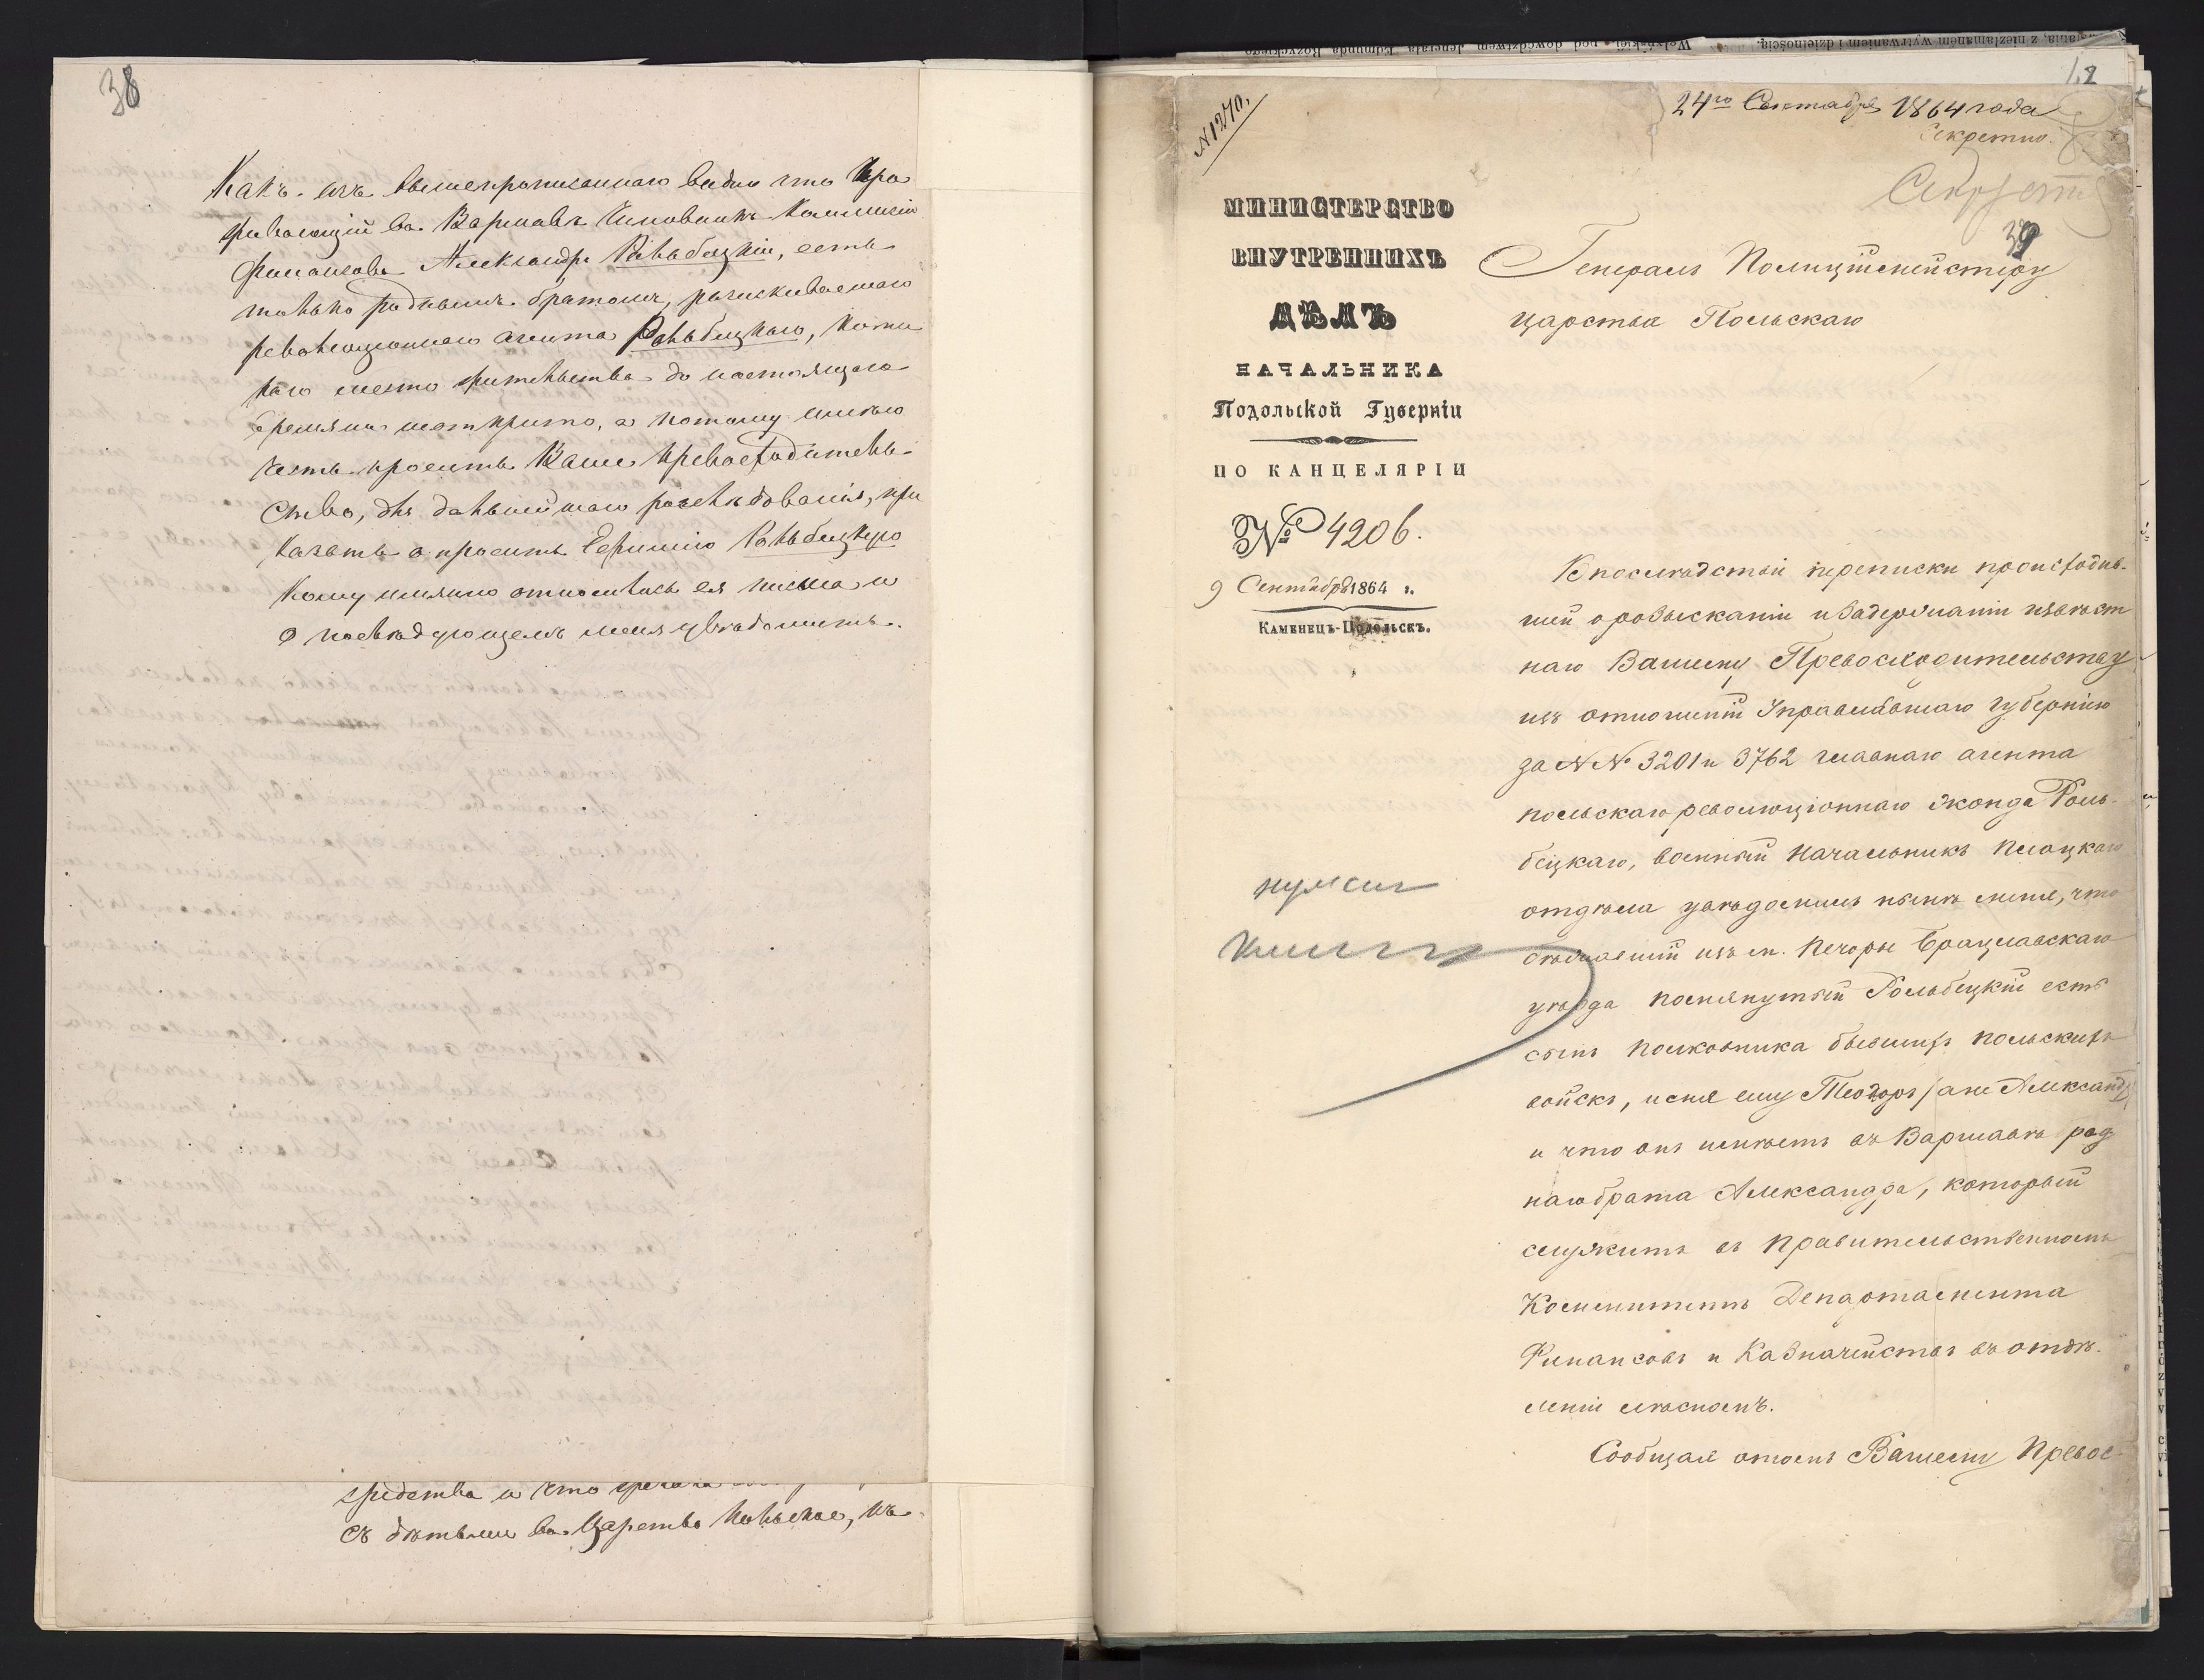 38
Какъ изъ вышепрописаннаго видно что про
живающій въ Варшавѣ Чиновникъ Коммисіи
Финансовъ Александръ Рольбецкій, есть
только роднымъ братомъ, разыскиваемаго
революціоннаго агента Рольбецкаго, кото
раго место жительства до настоящаго
времяни не открыто, а потому имѣю
честь просить Ваше Превосходитель-
ство, для дальнѣйшаго розслѣдованія, при
казать о просить Ефимію Рольбецкую
кому имянно относились ея письма и
о послѣдующемъ меня увѣдомить.
средства и что
съ дѣтьми въ Царство Польское,
№ 1270.
24го Сентября 1864 года
Секретно.
39
МИНИСТЕРСТВО
ВНУТРЕННИХЪ
ДѢЛЪ
НАЧАЛЬНИКА
Подольской Губерніи
ПО КАНЦЕЛЯРІИ
№ 4206.
9 Сентября 1864 г.
Каменецъ-Подольскъ.
Генералъ Полиціймейстеру
Царства Польскаго
Впослѣдствіи переписки происходив-
шей о розысканіи и задержаніи извѣст
наго Вашему Превосходительству
изъ отношеній Управлявшаго губерніею
за №№ 3201 и 3762 главнаго агента
польскаго революціоннаго жонда Роль-
бецкаго, военный начальникъ Плоцкаго
отдѣла увѣдомилъ нынѣ меня, что
бѣжавшій изъ м. Печоры Брацлавскаго
уѣзда помянутый Рольбецкій есть
сынъ полковника бывшихъ польскихъ
войскъ, имя ему Теодоръ /а не Александръ/
и что онъ имѣетъ въ Варшавѣ род
наго брата Александра, который
служитъ въ Правительственномъ
Коммитетѣ Департамента
Финансовъ и Казначействъ въ отдѣ-
леніи лѣсномъ.
Сообщая о томъ Вашему Превос-